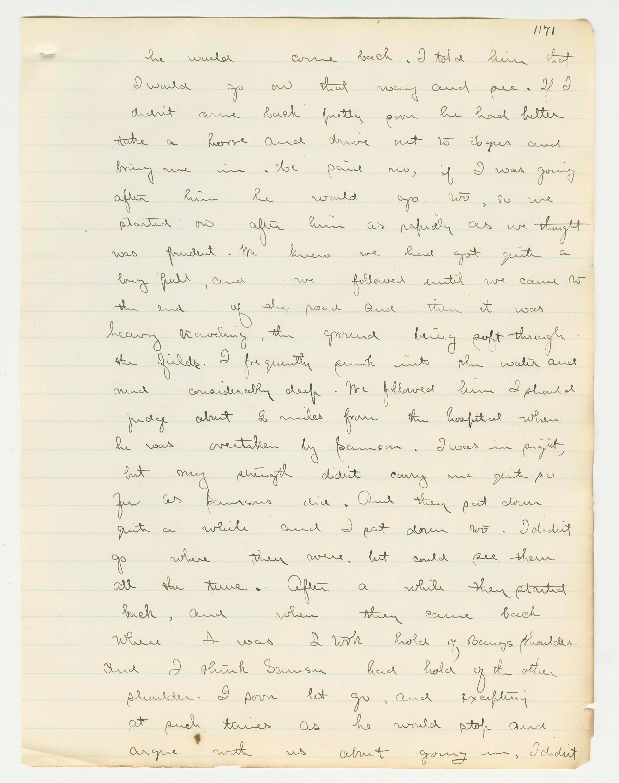 1171
he would come back. I told him that
I would go on that way and see. If I
didn't come back pretty soon he had better
take a horse and drive out to and
bring me in. He said no, if I was going
after him he would go too, so we
started on after him as rapidly as we thought
was prudent. We knew we had got quite a
long pull, and we followed until we came to
the end of the road and then it was
heavy traveling, the ground being soft through
the fields. I frequently sunk into the water and
mud considerably deep. We followed him I should
judge about 2 miles from the hospital when
he was overtaken by Samson. I was in sight,
but my strength didn't carry me quite so
far as Samsons did. And they sat down
quite a while and I sat down too. I didn't
go where they were, but could see them
all the time. After a while they started
back, and when they came back
where I was I took hold of shoulder
and I think Samson had hold of the other
shoulder. I soon let go, and excepting
at such times as he would stop and
argue with us about going in, I didn't